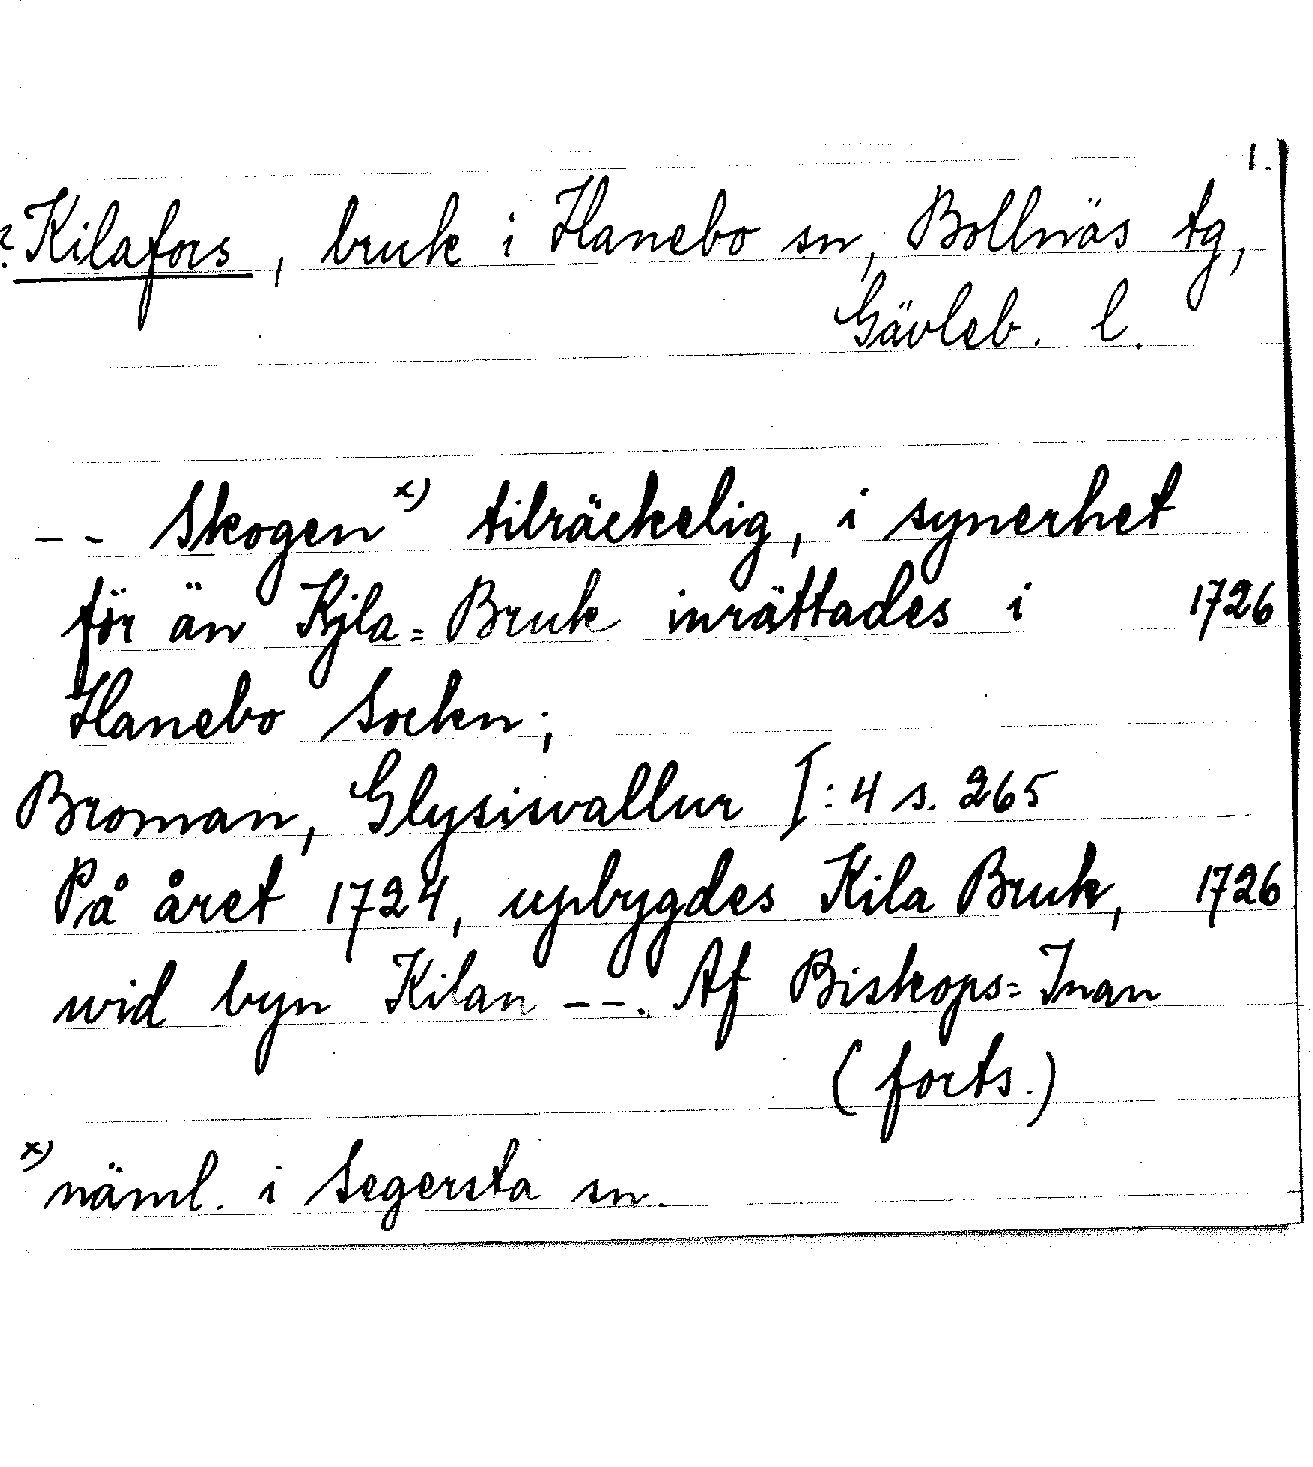 1.
? Kilafors, bruk i Hanebo sn, Bollnäs tg,
Gävleb. l.
-- Skogen x) tilräckelig, i synerhet
för än Kjla=Bruk inrättades i 1726
Hanebo Sockn;
Broman, Glysisvallur I:4 s. 265
På året 1724, upbygdes Kila Bruk, 1726
wid byn Kilan --. Af Biskops=Inan
(forts.)
x) näml. i Segersta sn.